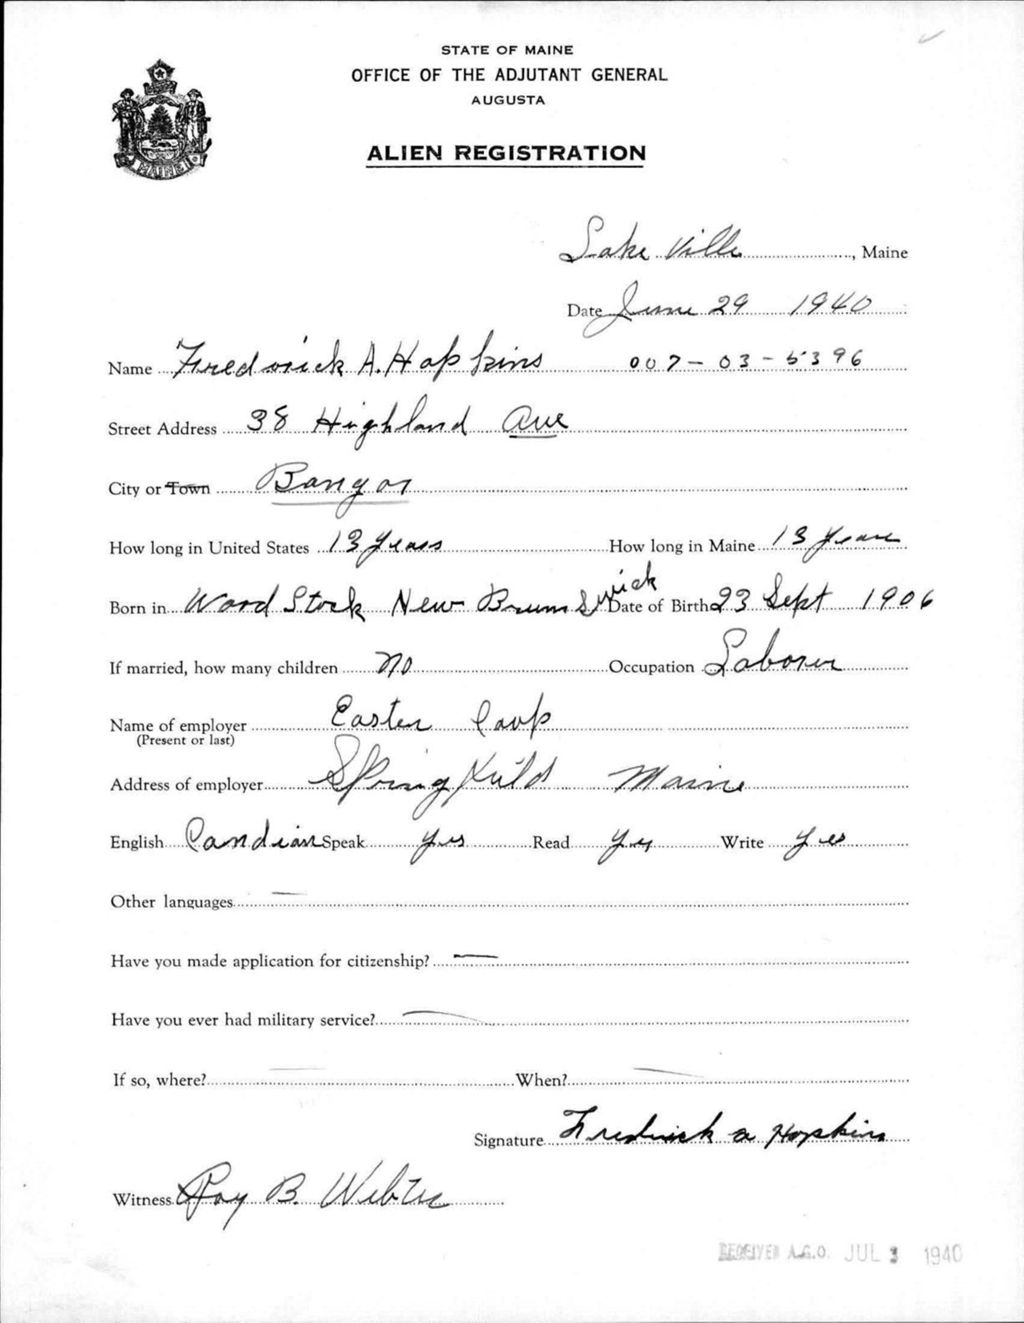 STATE OF MAINE
OFFICE OF THE ADJUTANT GENERAL
AUGUSTA
ALIEN REGISTRATION
MAINE
Lake Ville, Maine
Date June 29 1940
Name Fredrick A. Hopkins 007-03-5396
Street Address 38 Highland Ave
City or Town Bangor
How long in United States 13 years How long in Maine 13 years
Born in Word Stock New Brunswick Date of Birth 23 Sept 1906
If married, how many children no Occupation Laborer
Name of employer Easten Coop
(Present or last)
Address of employer Spring Field Maine
English Candian Speak yes Read yes Write yes
Other languages —
Have you made application for citizenship? —
Have you ever had military service? —
If so, where? — When? —
Signature Fredrick A Hopkins
Witness Roy B. Webter
RECEIVED A.G.O. JUL 3 1940